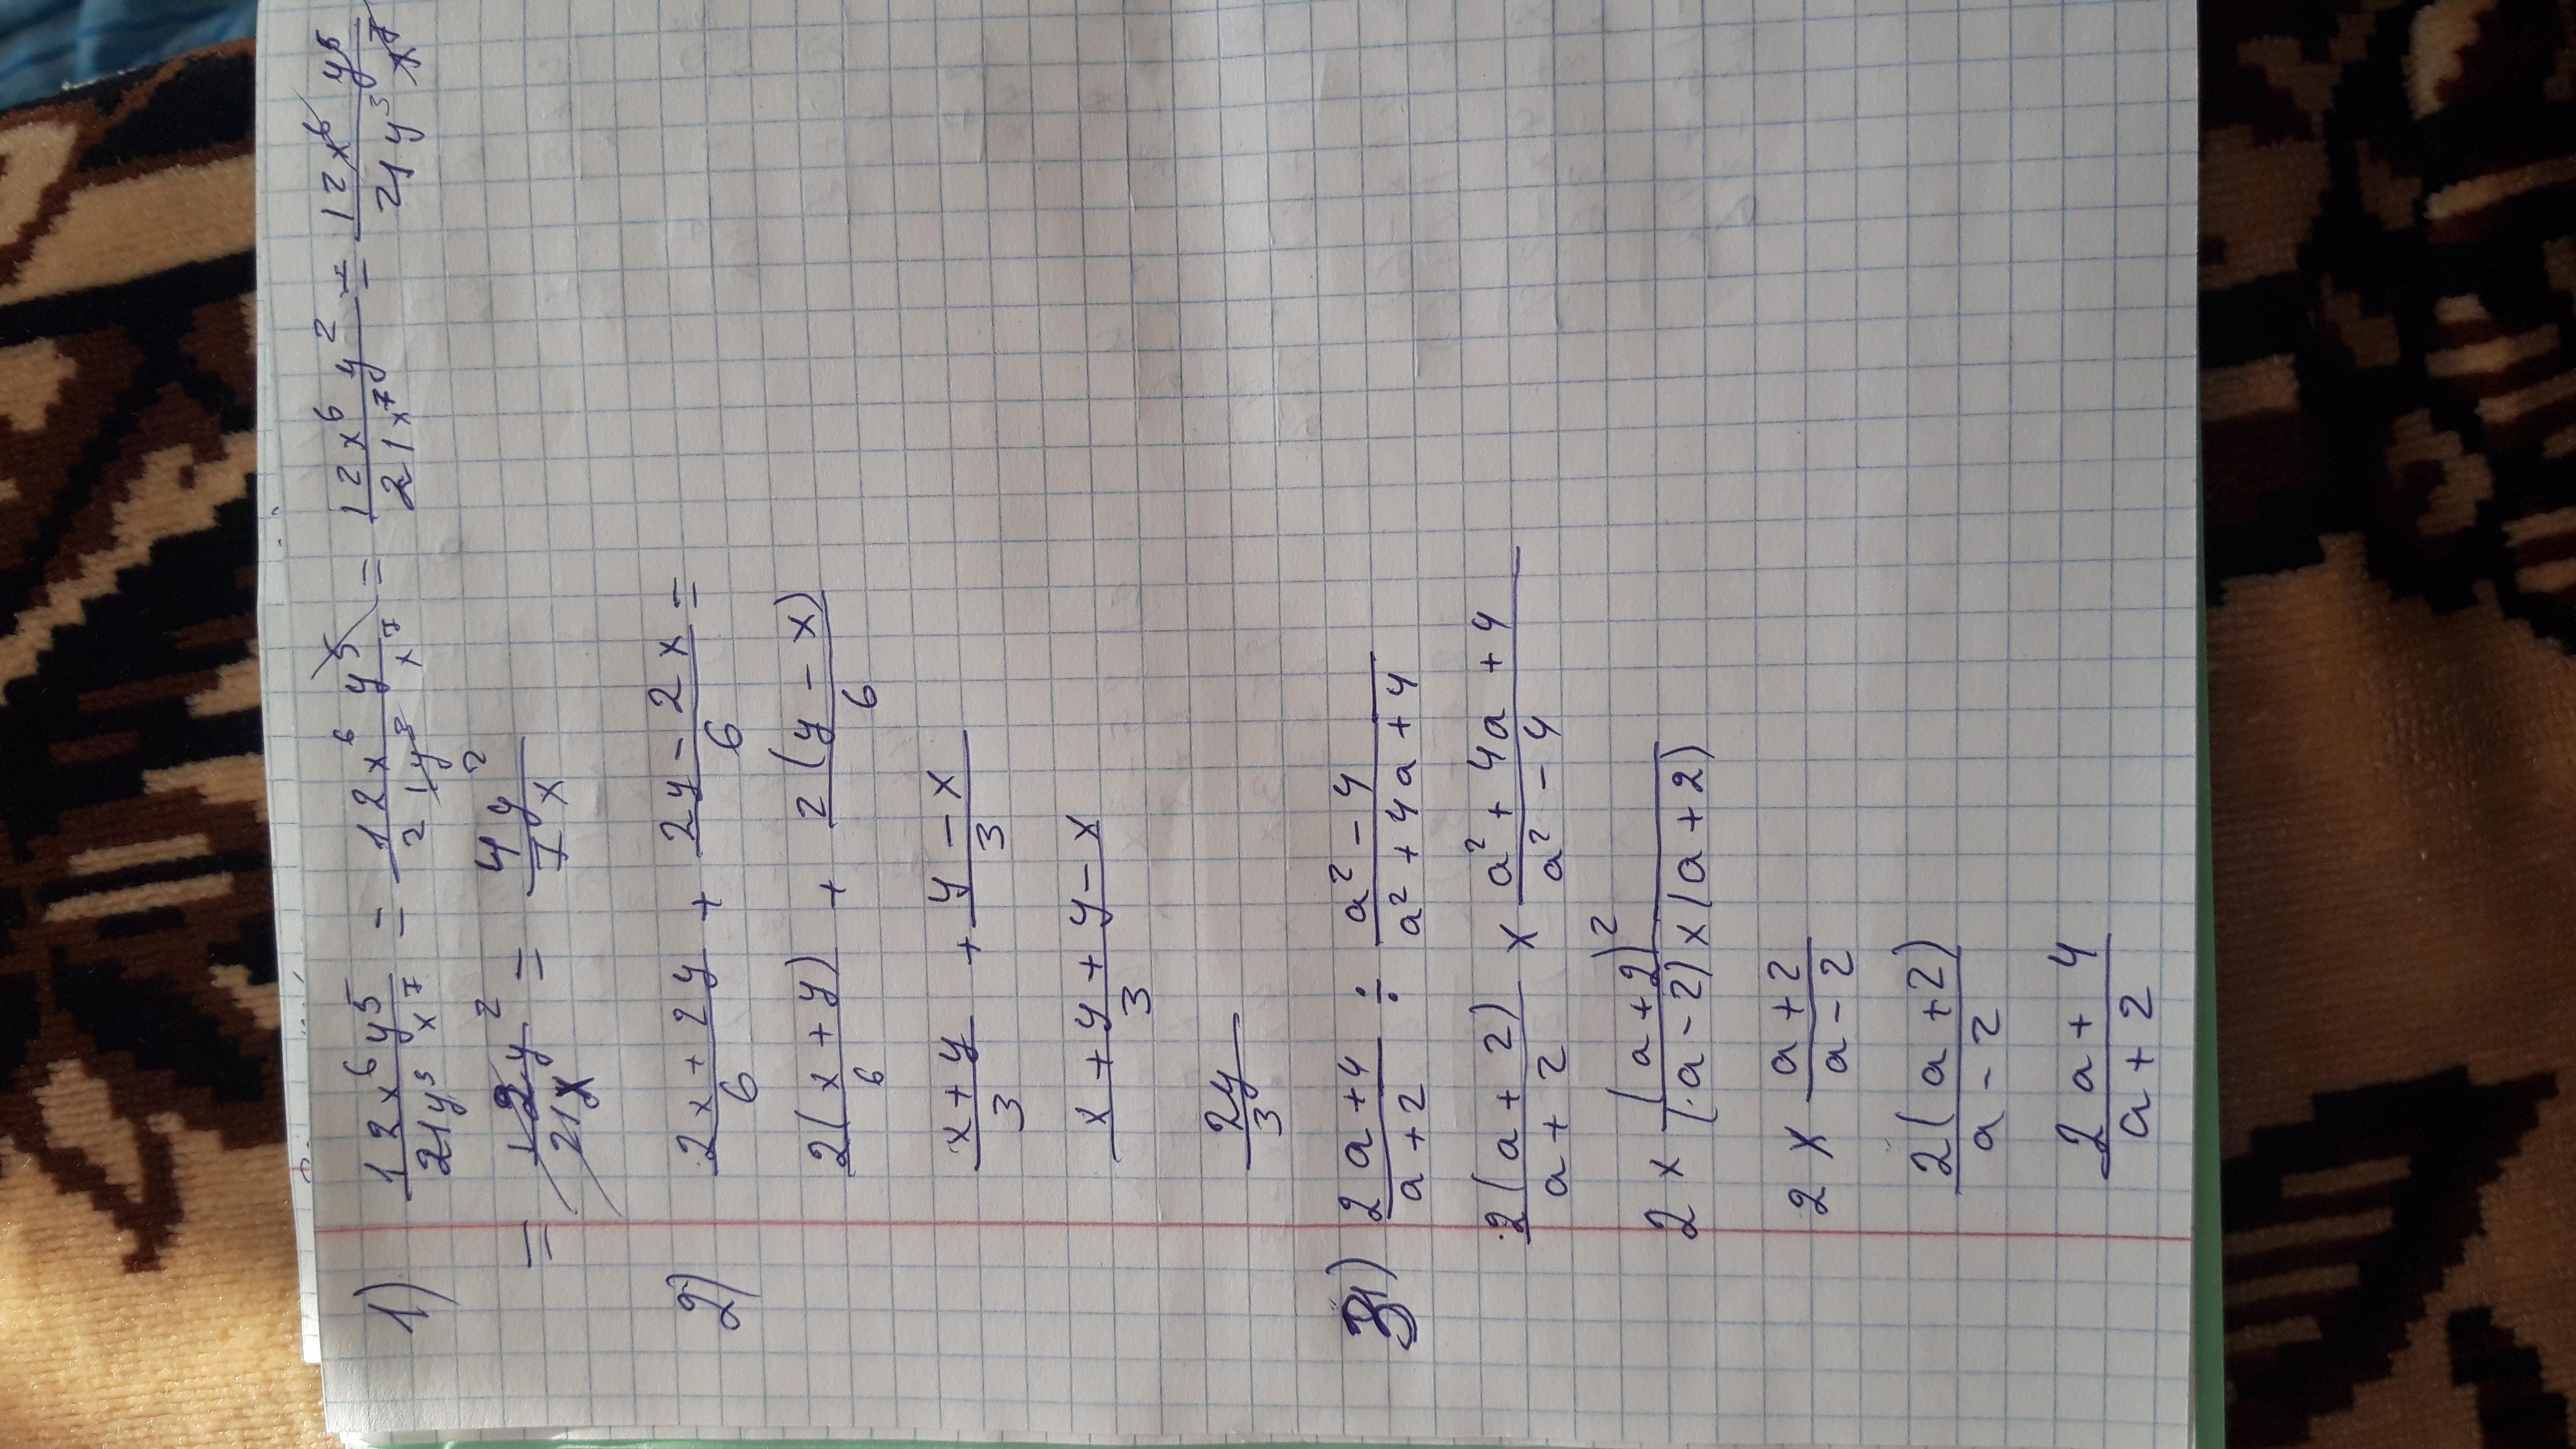 1) 12x⁶y⁵/21y³x⁷ = 12x⁶y⁵/21y³x⁷ = 12x⁶y²/21x⁷ = 12x⁶y⁵/21y³x⁷
= 12y²/21x = 4y²/7x
2) 2x+2y/6 + 2y-2x/6 =
2(x+y)/6 + 2(y-x)/6
x+y/3 + y-x/3
x+y+y-x/3
2y/3
3) 2a+4/a+2 ÷ a²-4/a²+4a+4
2(a+2)/a+2 x a²+4a+4/a²-4
2 x (a+2)²/(a-2)x(a+2)
2 x a+2/a-2
2(a+2)/a-2
2a+4/a+2